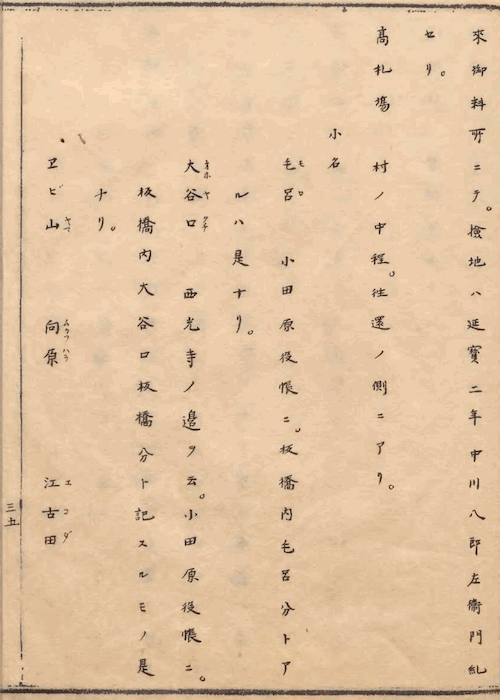 來御料所ニテ。檢地ハ延寶二年中川八郎左衞門糺
セリ。
高札場　村ノ中程。往還ノ側ニアリ。
小名
毛呂　小田原役帳ニ。板橋内毛呂分トア
モロ
ルハ是ナリ。
大谷口　西光寺ノ邉ヲ云。小田原役帳ニ。
オホヤクチ
板橋内大谷口板橋分ト記スルモノ是
ナリ。
ヱビ山　向原　江古田
ヤマ　ムカフハラ　エコダ
三五